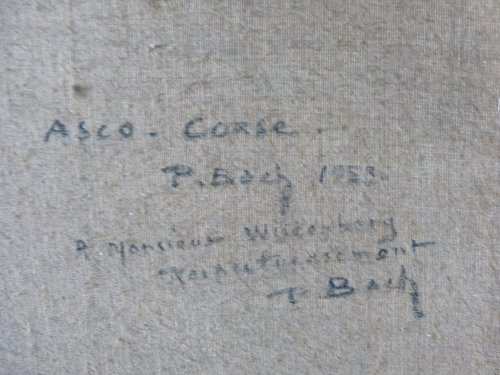 ASCO - CORSE -
P. Bach 1953-
A Monsieur
Respectueusement
P. Bach